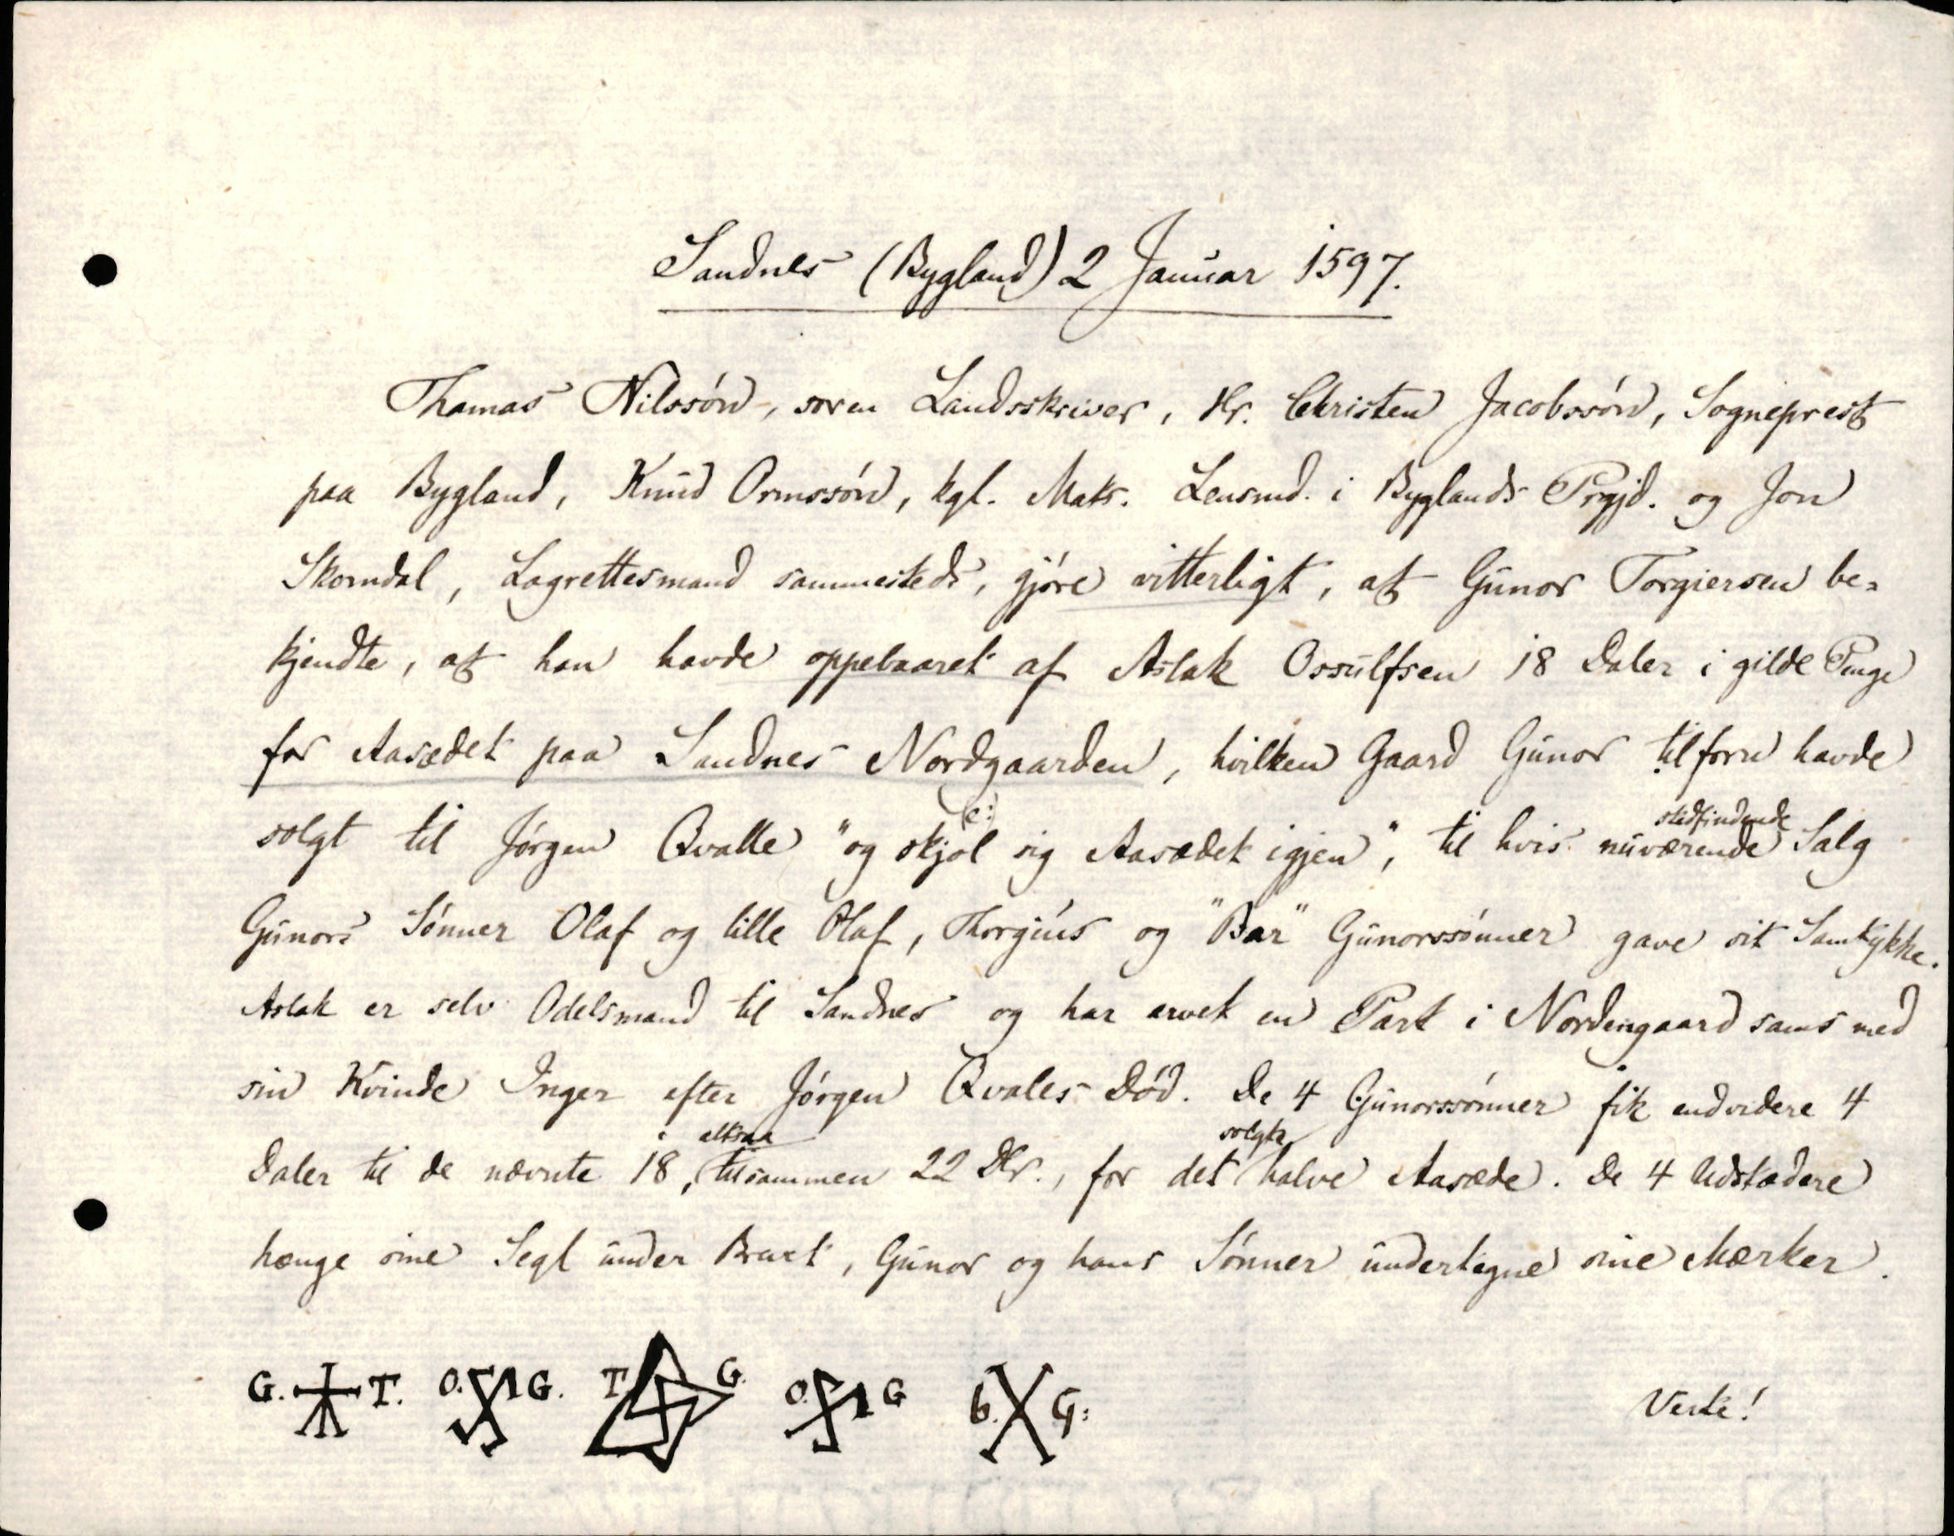 Sandnes (Bygland) 2 Januar 1597.
Thomas Nilssón, soren Landsskriver, Hr. Christen Jacobssón, Sogneprest
paa Bygland, Knud Ormssón, kgl. Mats. Lensmd. i Byglands Prgjd. og Jon
Skomdal, Lagrettesmand sammesteds, gjóre vitterligt, at Gunor Torgiersen be=
kjendte, at han havde oppebaaret af Aslak Ossulfsen 18 Daler i gilde Penge
for Aasædet paa Sandnes Nordgaarden, hvilken Gaard Gunor tilforn havde
solgt til Jórgen Qvalle "og skjól (e:) sig Aasædet igjen", til hvis nuværende stedfindende Salg
Gunors Sónner Olaf og lille Olaf, Thorgius og "Bar" Gunorssónner gave sit Samtykke.
Aslak er selv Odelsmand til Sandnes og har arvet en Part i Nordengaard sams med
sin Kvinde Inger efter Jórgen Qvales Dód. De 4 Gunorssónner fik endvidere 4
Daler til de nævnte 18, altsaa tilsammen 22 Dlr., for det solgte halve Aasæde. De 4 Udstædere
hænge sine Segl under Brevet, Gunor og hans Sónner undertegne sine Mærker.
G. T. O. G. T. G. O. G b. G:
Verte!